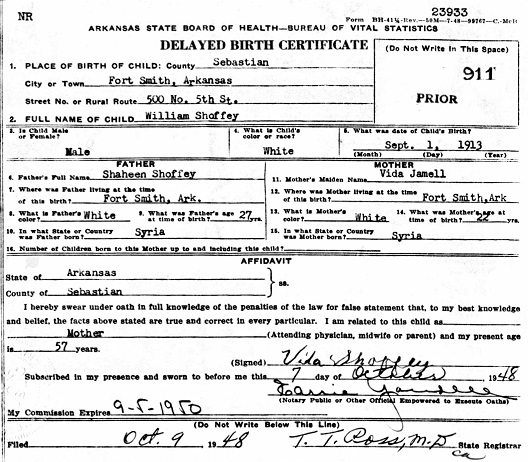 NR
23933
Form BH-41¼-Rev.-50M-7-48-99767-C.-McR
ARKANSAS STATE BOARD OF HEALTH—BUREAU OF VITAL STATISTICS
DELAYED BIRTH CERTIFICATE
(Do Not Write In This Space)
911
PRIOR
1. PLACE OF BIRTH OF CHILD: County Sebastian
City or Town Fort Smith, Arkansas
Street No. or Rural Route 500 No. 5th St.
2. FULL NAME OF CHILD William Shoffey
3. Is Child Male or Female? Male
4. What is Child's color or race? White
5. What was date of Child's Birth? Sept. 1, 1913
(Month) (Day) (Year)
FATHER
6. Father's Full Name Shaheen Shoffey
7. Where was Father living at the time of this birth? Fort Smith, Ark.
8. What is Father's color? White
9. What was Father's age at time of birth? 27 yrs.
10. In what State or Country was Father born? Syria
MOTHER
11. Mother's Maiden Name Vida Jamell
12. Where was Mother living at the time of this birth? Fort Smith, Ark
13. What is Mother's color? White
14. What was Mother's age at time of birth? 22 yrs.
15. In what State or Country was Mother born? Syria
16. Number of Children born to this Mother up to and including this child?
AFFIDAVIT
State of Arkansas
County of Sebastian
ss.
I hereby swear under oath in full knowledge of the penalties of the law for false statement that, to my best knowledge
and belief, the facts above stated are true and correct in every particular. I am related to this child as
Mother (Attending physician, midwife or parent) and my present age
is 57 years.
(Signed) Vida Shoffey
Subscribed in my presence and sworn to before me this 7 day of October 1948
(Notary Public or Other Official Empowered to Execute Oaths)
My Commission Expires 9-5-1950
(Do Not Write Below This Line)
Filed Oct. 9 1948 T. T. Ross, M.D. State Registrar
ca